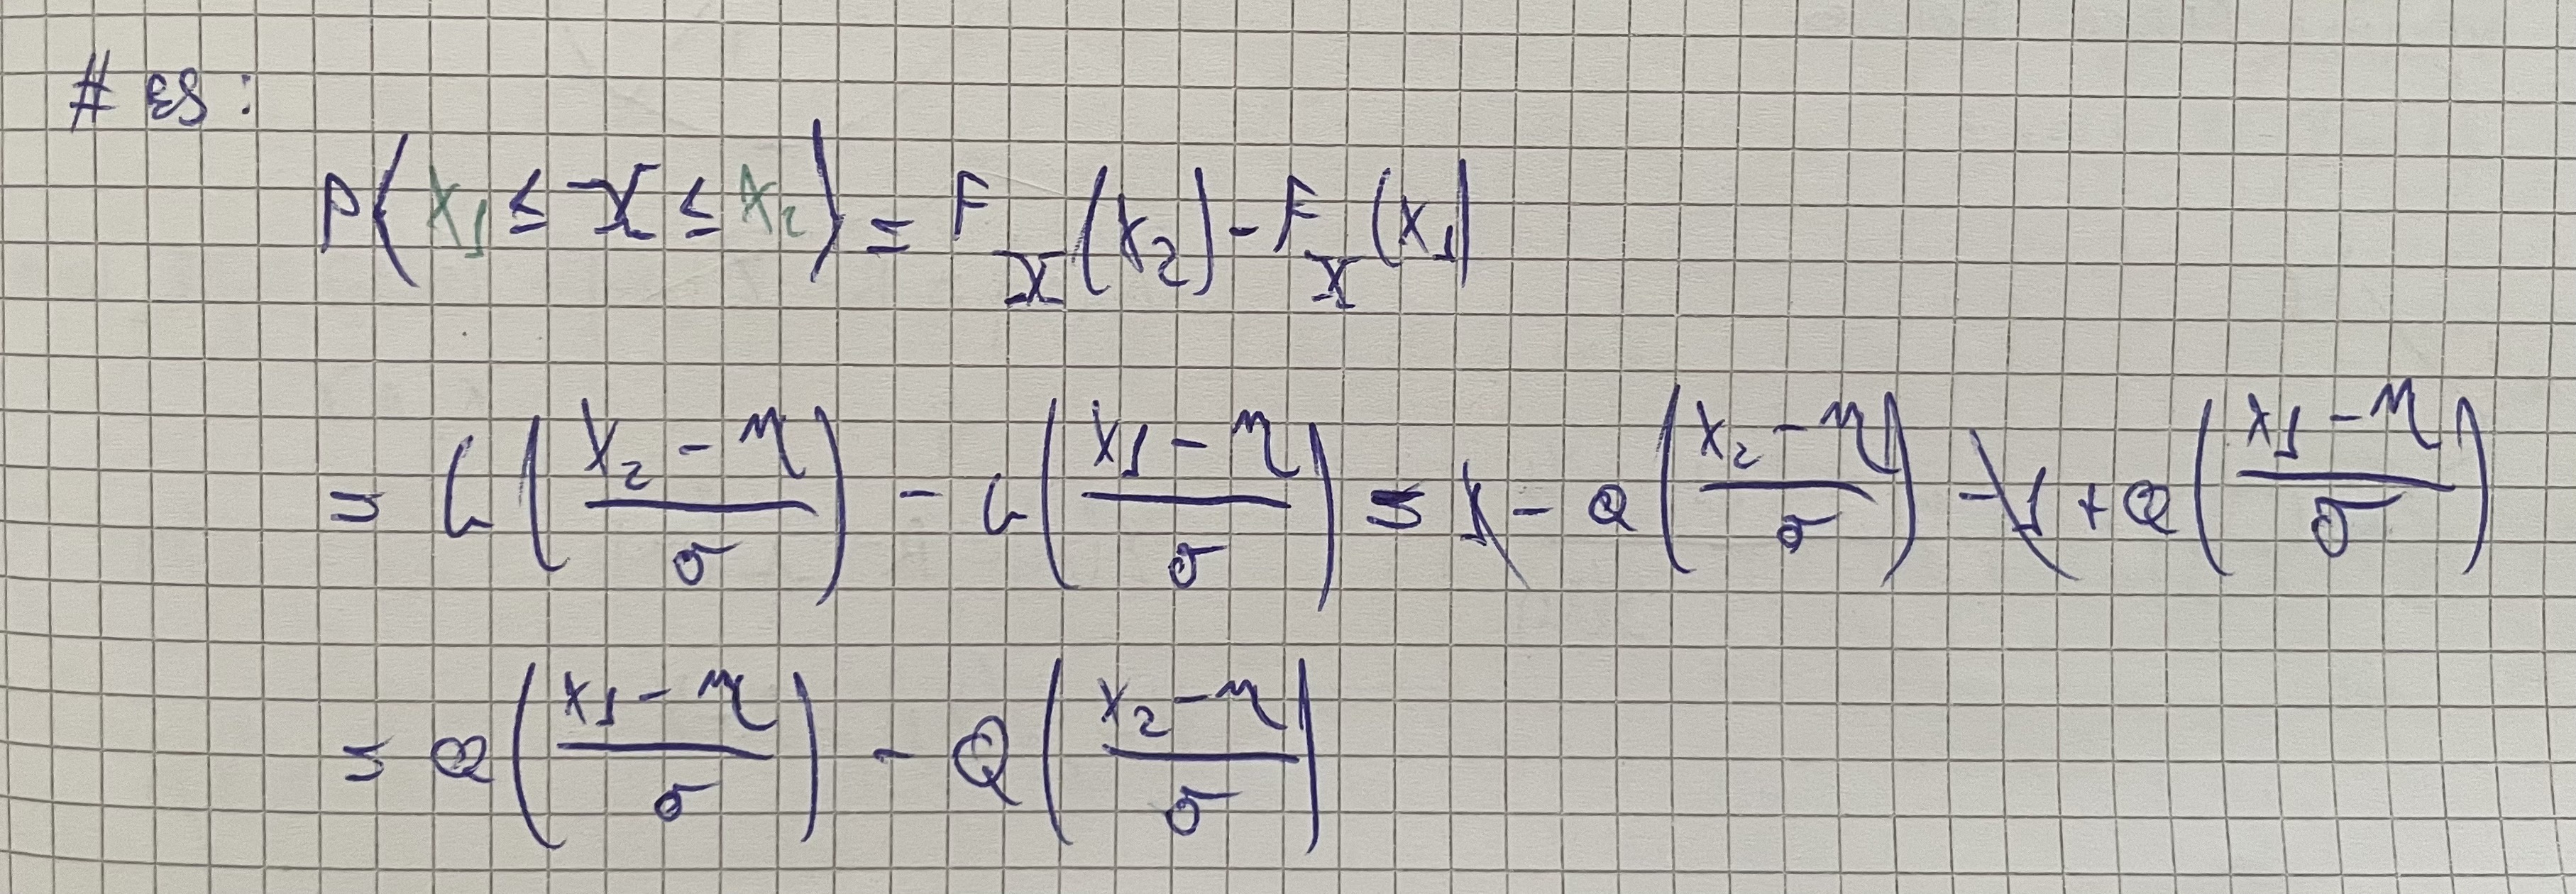 # ES:
P(x₁ ≤ X ≤ x₂) = F_X(x₂) - F_X(x₁)
= G((x₂ - η)/σ) - G((x₁ - η)/σ) = 1 - Q((x₂ - η)/σ) - 1 + Q((x₁ - η)/σ)
= Q((x₁ - η)/σ) - Q((x₂ - η)/σ)